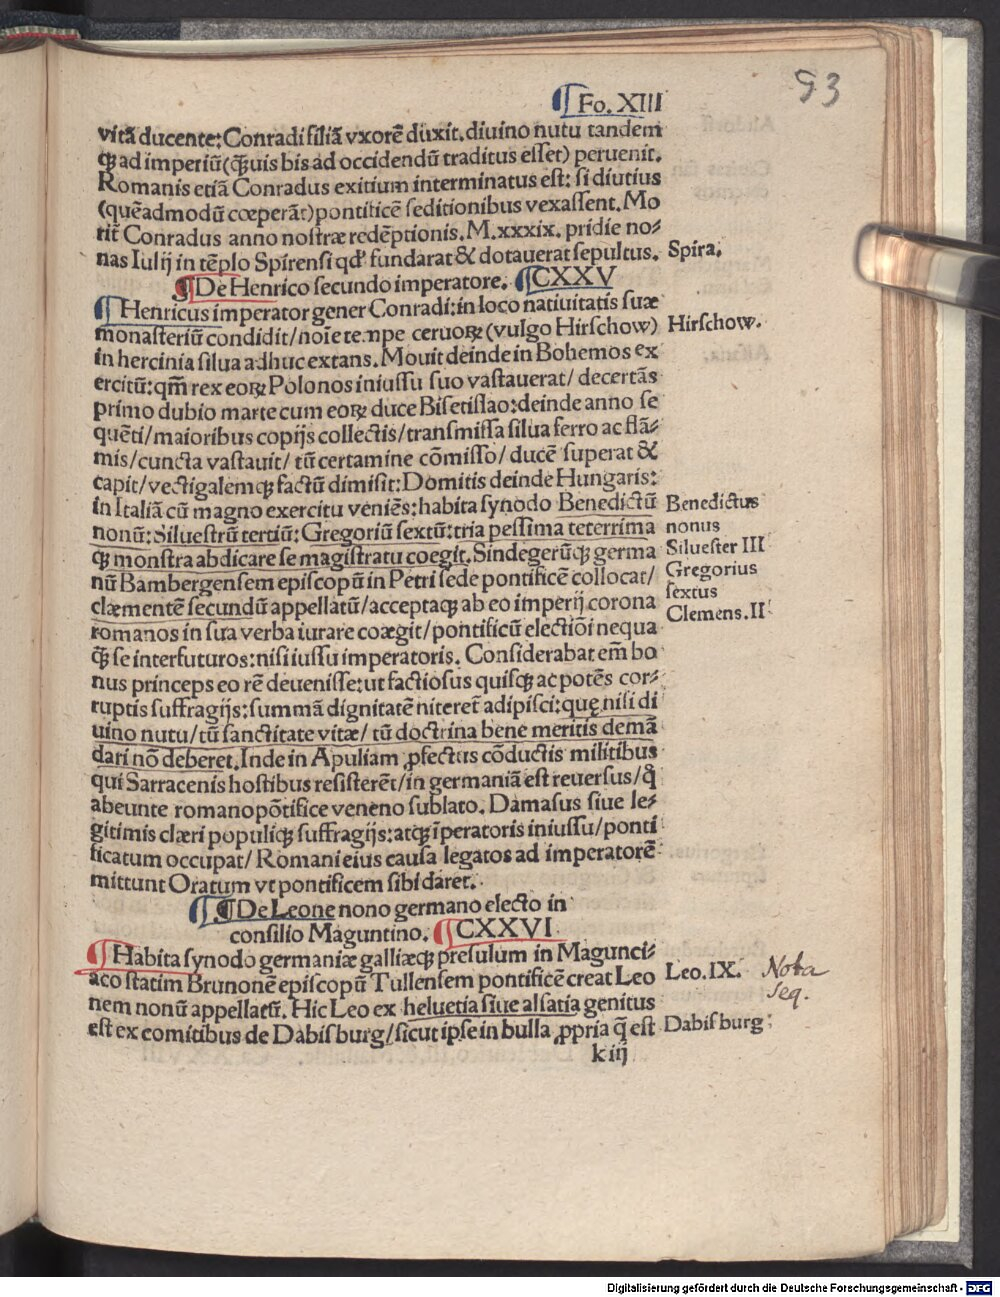 93
¶ Fo. XIII
vitā ducente: Conradi filiā vxorē duxit. diuino nutu tandem
ꝙ ad imperiū (ꝙ̄uis bis ad occidendū traditus esset) peruenit.
Romanis etiā Conradus exitium interminatus est: si diutius
(quēadmodū cœperāt) pontificē seditionibus vexassent. Mo
rit᷑ Conradus anno nostræ redēptionis. M. xxxix. pridie no⸗
nas Iulij in tēplo Spirensi qd' fundarat & dotauerat sepultus. Spira.
¶ De Henrico secundo imperatore. ¶ CXXV
¶ Henricus imperator gener Conradi: in loco natiuitatis suæ
monasteriū condidit / noīe tempe ceruoꝝ (vulgo Hirschow) Hirschow.
in hercinia silua adhuc extans. Mouit deinde in Bohemos ex
ercitū: qm̄ rex eoꝝ Polonos iniussu suo vastauerat / decertās
primo dubio marte cum eoꝝ duce Bisetislao: deinde anno se
quēti / maioribus copijs collectis / transmissa silua ferro ac flā⸗
mis / cuncta vastauit / tū certamine cōmisso / ducē superat &
capit / vectigalemqꝫ factū dimisit: Domitis deinde Hungaris:
in Italiā cū magno exercitu veniēs: habita synodo Benedictū Benedictus
nonū: Siluestrū tertiū: Gregoriū sextū: tria pessima teterrima nonus
qꝫ monstra abdicare se magistratu coegit. Sindegerūqꝫ germa Siluester III
nū Bambergensem episcopū in Petri sede pontificē collocat / Gregorius
sextus
clæmentē secundū appellatū / acceptaqꝫ ab eo imperij corona Clemens. II
romanos in sua verba iurare coægit / pontificū electiōi nequa
ꝙ̄ se interfuturos: nisi iussu imperatoris. Considerabat em̄ bo
nus princeps eo rē deuenisse: ut factiosus quisqꝫ ac potēs cor⸗
ruptis suffragijs: summā dignitatē niteret᷑ adipisci: quę nisi di
uino nutu / tū sanctitate vitæ / tū doctrina bene meritis demā
dari nō deberet. Inde in Apuliam ꝓfectus cōductis militibus
qui Sarracenis hostibus resisterēt / in germaniā est reuersus / q̄
abeunte romano pōtifice veneno sublato. Damasus siue le⸗
gitimis clæri populiqꝫ suffragijs: atqꝫ īperatoris iniussu / ponti
ficatum occupat / Romani eius causa legatos ad imperatorē
mittunt Oratum vt pontificem sibi daret.
¶ De Leone nono germano electo in
consilio Maguntino. ¶ CXXVI
¶ Habita synodo germaniæ galliæqꝫ presulum in Magunci⸗
aco statim Brunonē episcopū Tullensem pontificē creat Leo Leo. IX. Nota
seq.
nem nonū appellatū. Hic Leo ex heluetia siue alsatia genitus
est ex comitibus de Dabisburg / sicut ipse in bulla ꝓpria q̄ est Dabisburg:
k iij
Digitalisierung gefördert durch die Deutsche Forschungsgemeinschaft - DFG